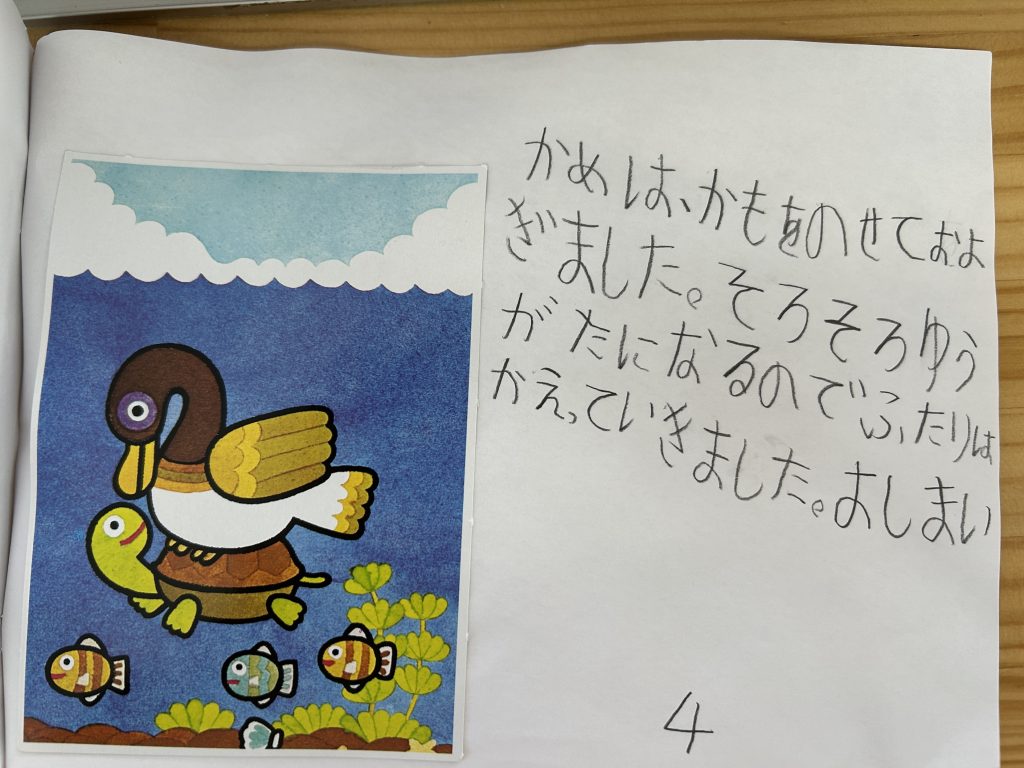 かめは、かもをのせておよ
ぎました。そろそろゆう
がたになるのでふたりは
かえっていきました。おしまい
4